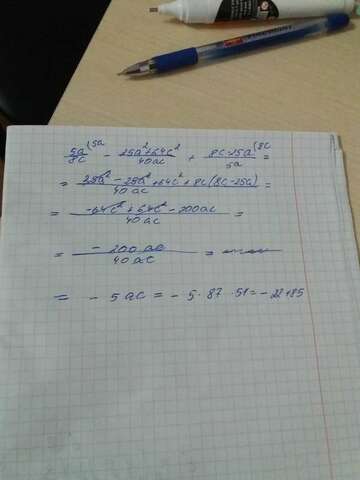 5a/8c (5a - 25a² + 64c²/40ac + 8c - 25a/5a (8c =
= 25a² - 25a² + 64c² + 8c(8c - 25a)/40ac =
= -64c² + 64c² - 200ac/40ac =
= - 200ac/40ac =
= - 5ac = - 5 · 87 · 51 = - 22185